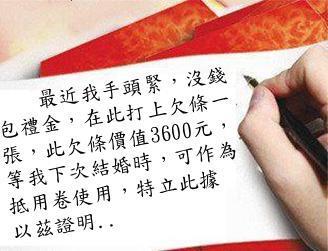 最近我手頭緊，沒錢
包禮金，在此打上欠條一
張，此欠條價值3600元，
等我下次結婚時，可作為
抵用卷使用，特立此據
以茲證明..